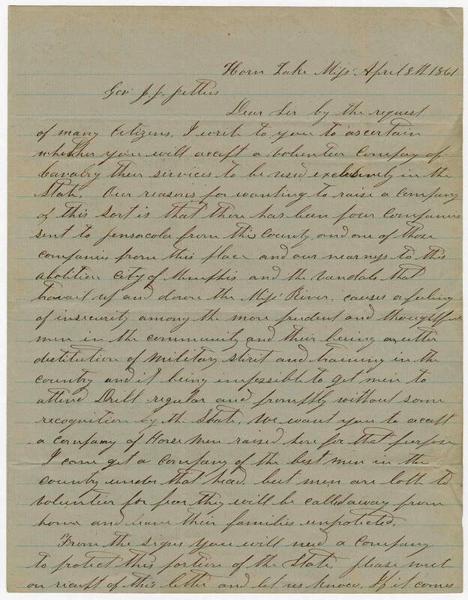 Horn Lake Miss. April 8th 1861
Gov J. J. Pettus
Dear Sir by the request
of many Citizens, I write to you to ascertain
whether you will accept a volunteer Company of
Cavalry their services to be used exclusively in the
State. Our reasons for wanting to raise a company
of this sort is that there has been four Companies
sent to pensacola from this County and one of those
companies from this place and our nearness to this
abolition City of Memphis and the vandals that
travail up and down the Miss River. causes a feling
of insecurity among the more prudent and thoughtful
men in the community and their being an utter
distitution of Military spirit and training in the
country and it being impossible to get men to
attend Drill regular and promptly without some
recognition by the State, We want you to accept
a Company of Horse Men raised here for that purpose
I can get a company of the best men in the
county under that head. but men are loth to
volunteer for fear they will be called away from
home and leave their families unprotected.
From the signs you will need a Company
to protect this portion of the State. please write
on receipt of this letter and let us know. If it comes